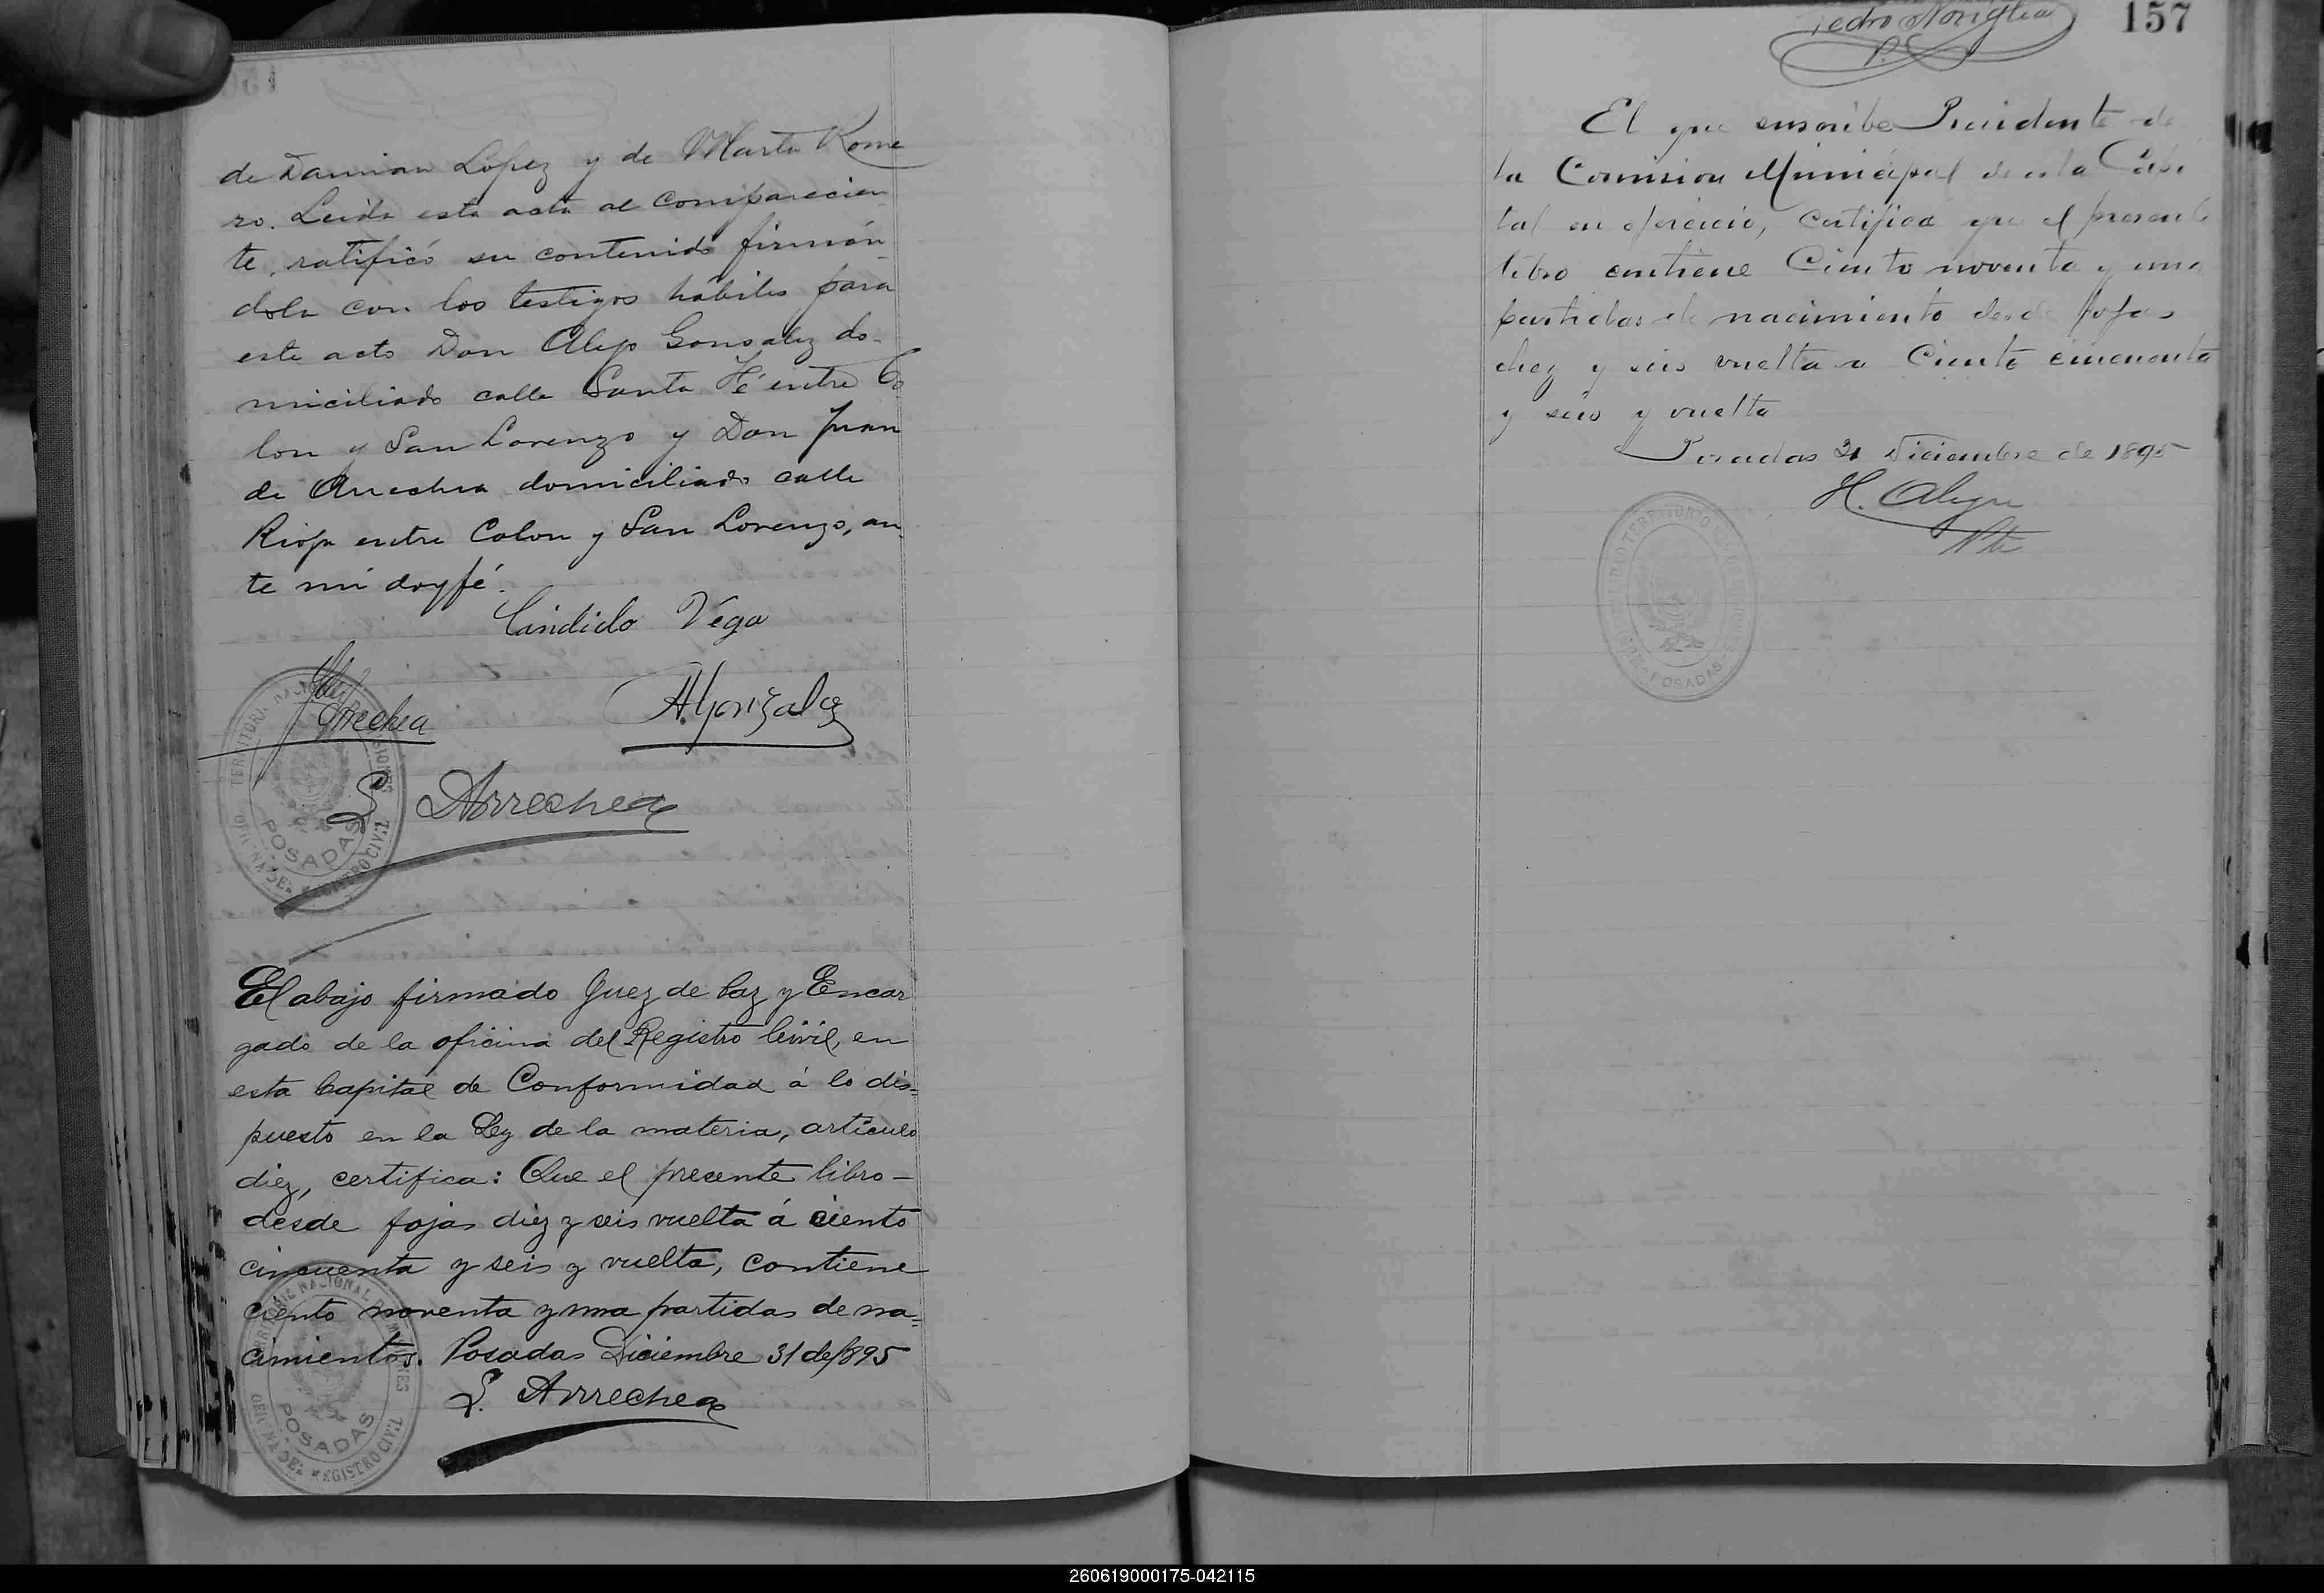 de Damian Lopez y de Marta Rome
ro. Leida esta acta al comparecien
te, ratificó su contenido firmán-
dola con los testigos hábiles para
este acto Don Alejo Gonzalez do-
miciliado calle Santa Fé entre Co
lon y San Lorenzo y Don Juan
de Arrechea domiciliado calle
Rioja entre Colon y San Lorenzo, an
te mí doy fé.
Cándido Vega
Arrechea
A. Gonzalez
L. Arrechea
TERRITORIO NACIONAL DE MISIONES
POSADAS
OFICINA DEL REGISTRO CIVIL
El abajo firmado Juez de Paz y Encar
gado de la oficina del Registro Civil, en
esta Capital de Conformidad á lo dis=
puesto en la Ley de la materia, artículo
diez, certifica: Que el presente libro-
desde fojas diez y seis vuelta á ciento
cincuenta y seis y vuelta, contiene
ciento noventa y una partidas de na=
cimientos. Posadas Diciembre 31 de 1895
L. Arrechea
TERRITORIO NACIONAL DE MISIONES
POSADAS
OFICINA DEL REGISTRO CIVIL
157
Pedro
El que suscribe Presidente de
la Comision Municipal de esta Capi
tal en ejercicio, certifica que el presente
libro contiene Ciento noventa y una
partidas de nacimiento desde fojas
diez y seis vuelta a Ciento cincuenta
y seis y vuelta
Posadas 31 Diciembre de 1895
H. Alegre
Pte
POSADAS
260619000175-042115